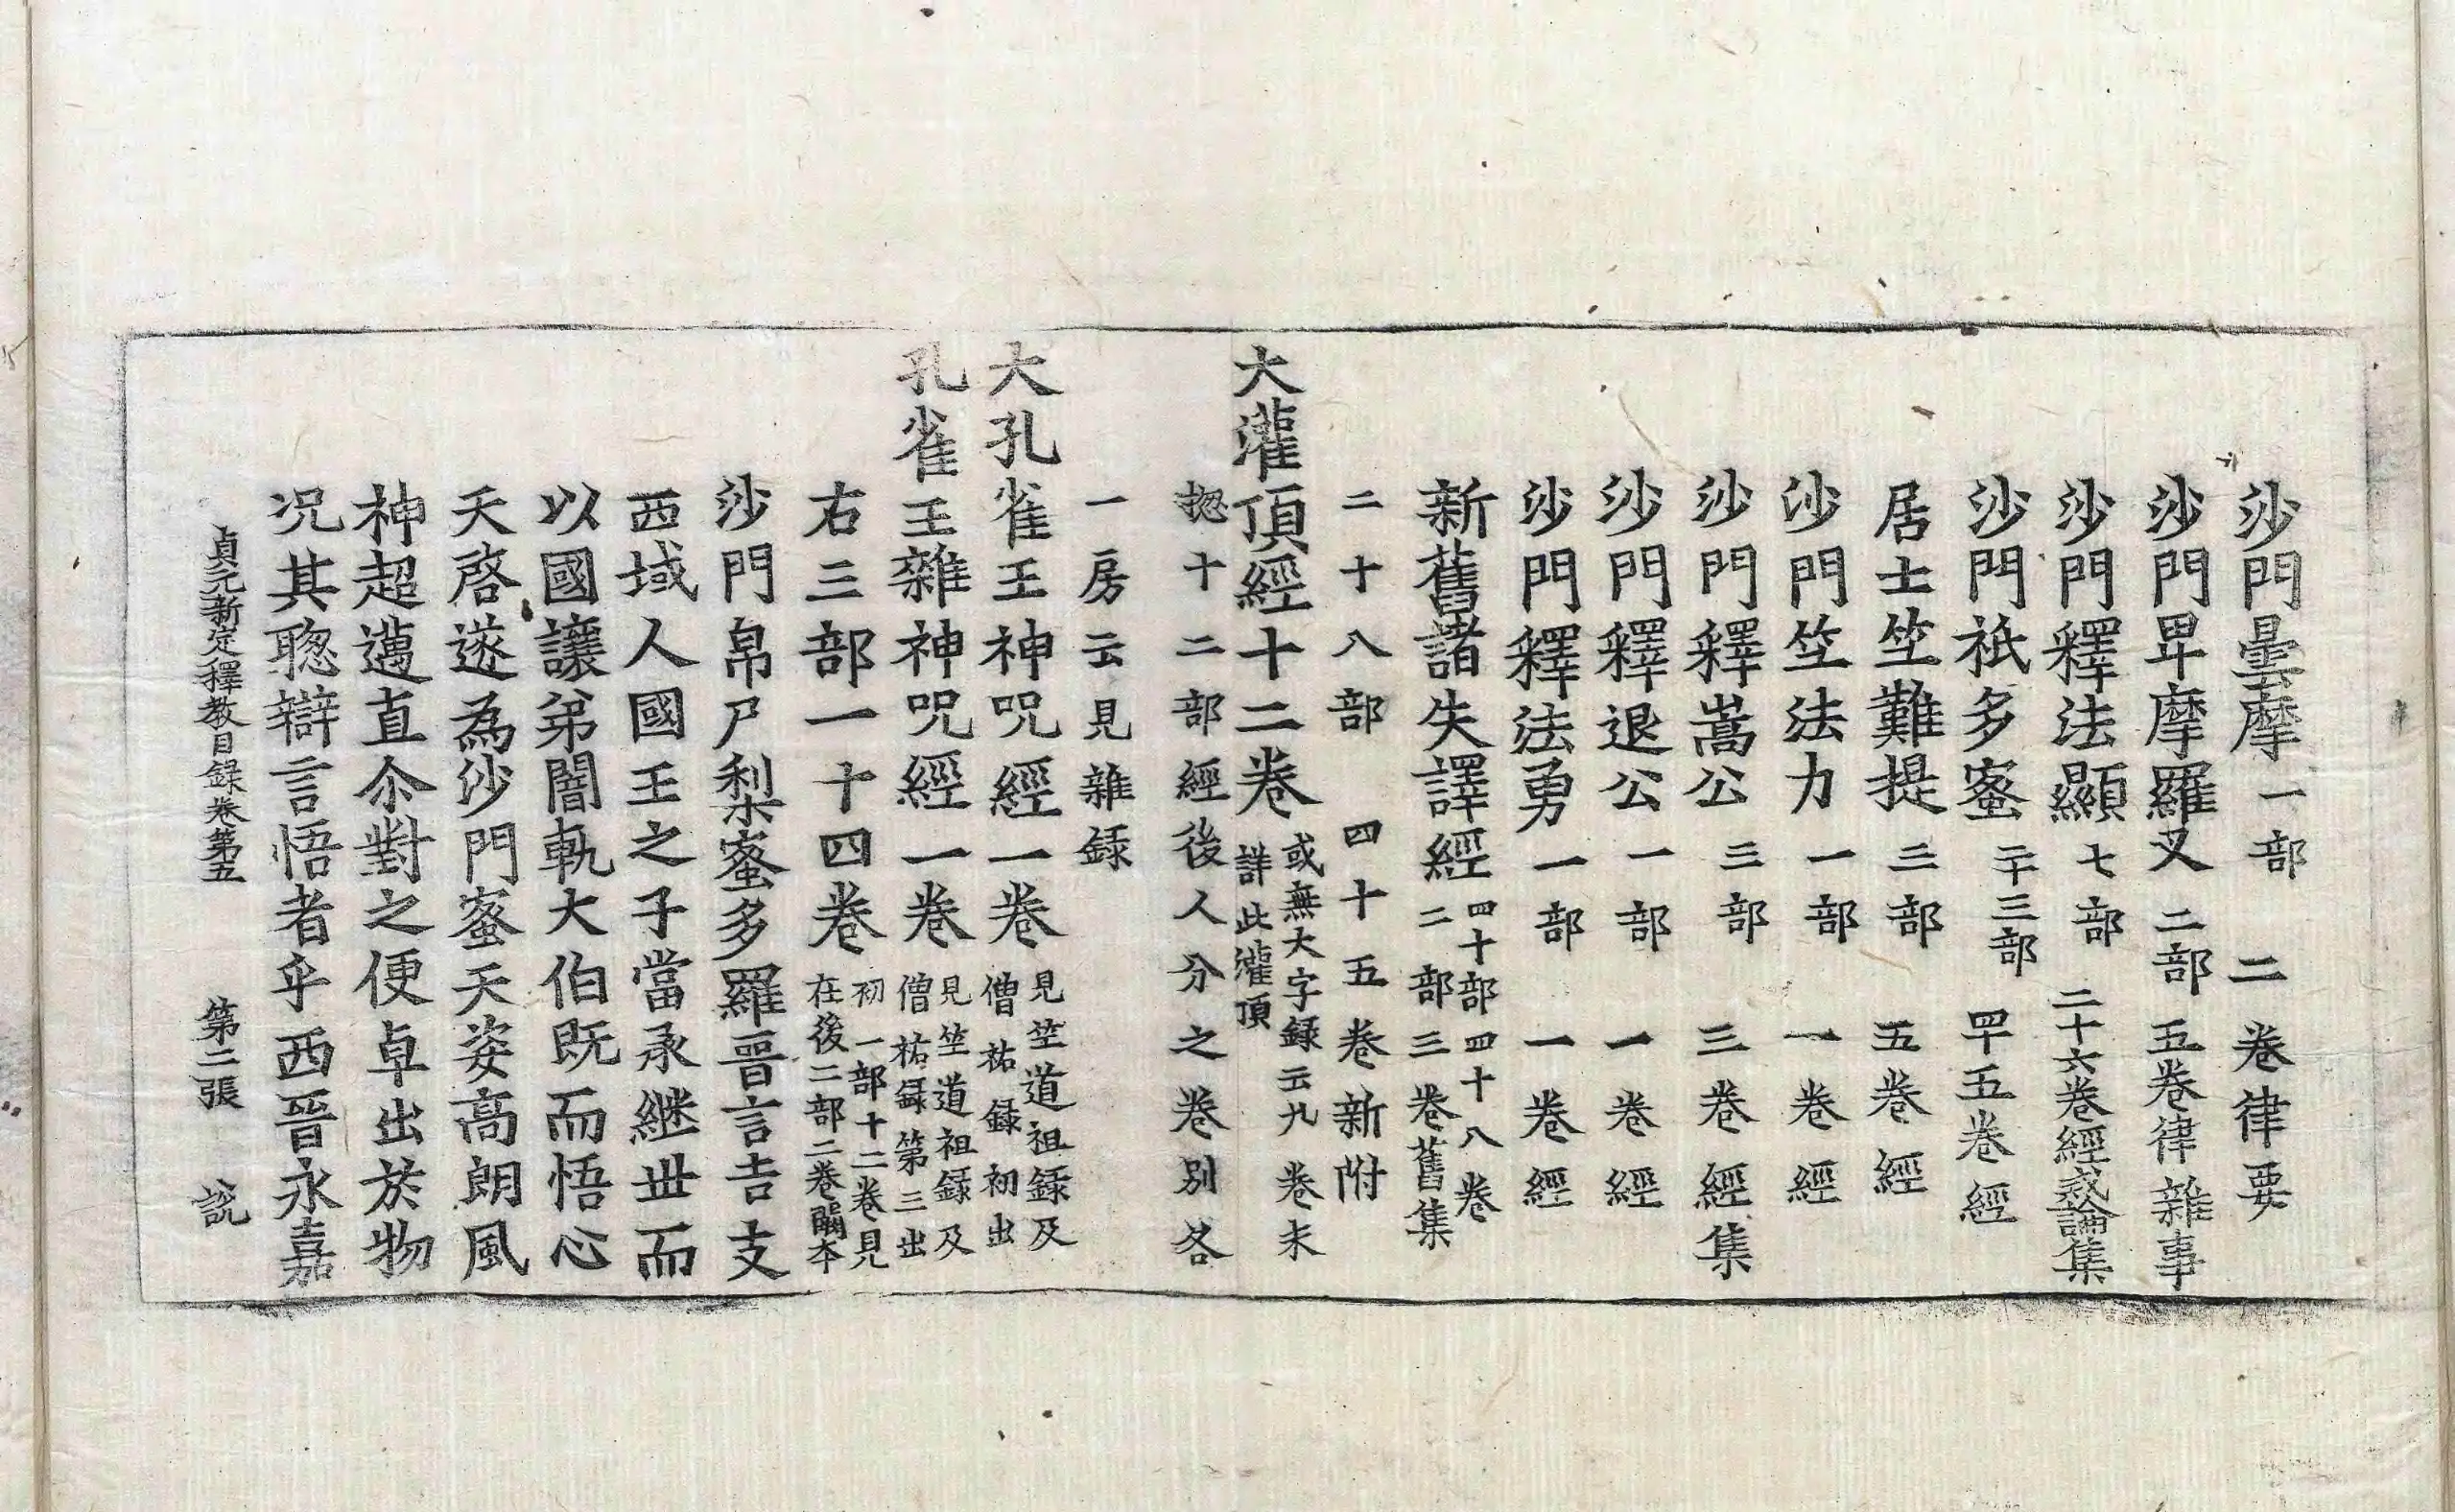 沙門曇摩一部 二卷律要
沙門卑摩羅叉二部 五卷律雜事
沙門釋法顯七部 二十六卷經戒論集
沙門祇多蜜二十三部 四十五卷經
居士竺難提三部 五卷經
沙門竺法力一部 一卷經
沙門釋嵩公三部 三卷經集
沙門釋退公一部 一卷經
沙門釋法勇一部 一卷經
新舊諸失譯經四十部四十八卷
二部三卷舊集
二十八部 四十五卷新附
大灌頂經十二卷或無大字録云九卷未
詳此灌頂
揔十二部經後人分之卷別各
一房云見雜録
大孔雀王神呪經一卷見竺道祖録及
僧祐録初出
孔雀王雜神呪經一卷見竺道祖録及
僧祐録第三出
右三部一十四卷初一部十二卷見
在後二部二卷闕本
沙門帛尸梨蜜多羅晉言吉支
西域人國王之子當承継丗而
以國讓弟闇軌大伯既而悟心
天啓遂為沙門蜜天姿高朗風
神超邁直尒對之便卓出於物
况其聦辯言悟者乎西晉永嘉
貞元新定釋教目録卷第五 第二張 說